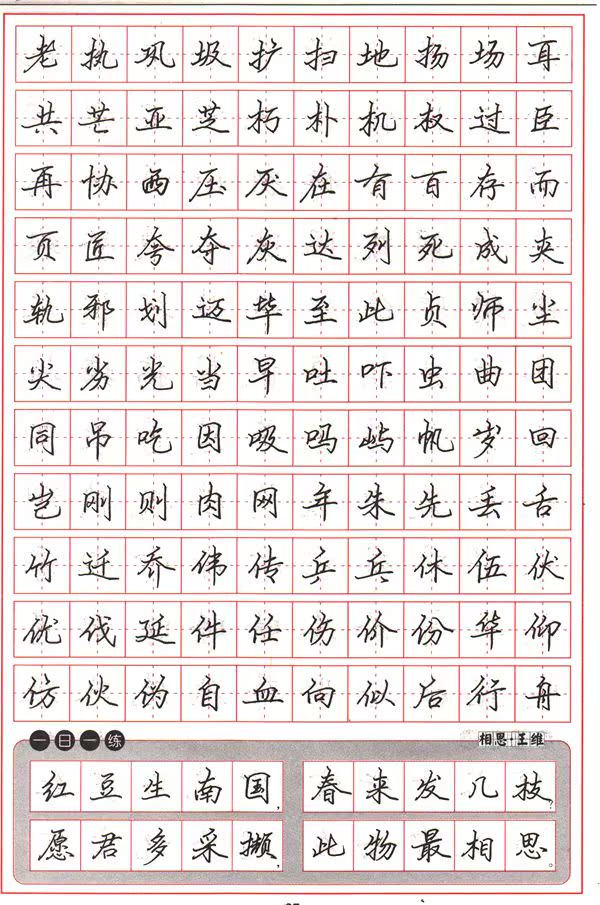 老执巩圾扩扫地扬场耳
共芒亚芝朽朴机权过臣
再协西压厌在有百存而
页匠夸夺灰达列死成夹
轨邪划迈毕至此贞师尘
尖劣光当早吐吓虫曲团
同吊吃因吸吗屿帆岁回
岂刚则肉网年朱先丢舌
竹迁乔伟传乒乓休伍伏
优伐延件任伤价份华仰
仿伙伪自血向似后行舟
一日一练
相思·王维
红豆生南国，春来发几枝？
愿君多采撷，此物最相思。